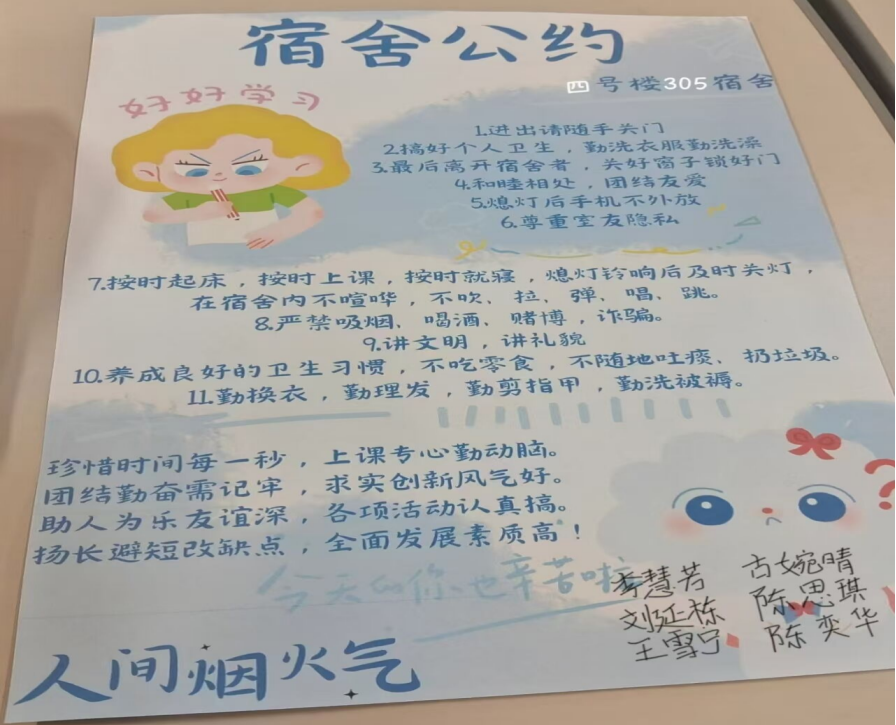 宿舍公约
四号楼305宿舍
好好学习
1.进出请随手关门
2.搞好个人卫生，勤洗衣服勤洗澡
3.最后离开宿舍者，关好窗子锁好门
4.和睦相处，团结友爱
5.熄灯后手机不外放
6.尊重室友隐私
7.按时起床，按时上课，按时就寝，熄灯铃响后及时关灯，
在宿舍内不喧哗，不吹、拉、弹、唱、跳。
8.严禁吸烟、喝酒、赌博，诈骗。
9.讲文明，讲礼貌
10.养成良好的卫生习惯，不吃零食，不随地吐痰、扔垃圾。
11.勤换衣，勤理发，勤剪指甲，勤洗被褥。
珍惜时间每一秒，上课专心勤动脑。
团结勤奋需记牢，求实创新风气好。
助人为乐友谊深，各项活动认真搞。
扬长避短改缺点，全面发展素质高！
今天的你也辛苦啦
李慧芳 古婉晴
刘延栋 陈思琪
王雪宁 陈奕华
人间烟火气